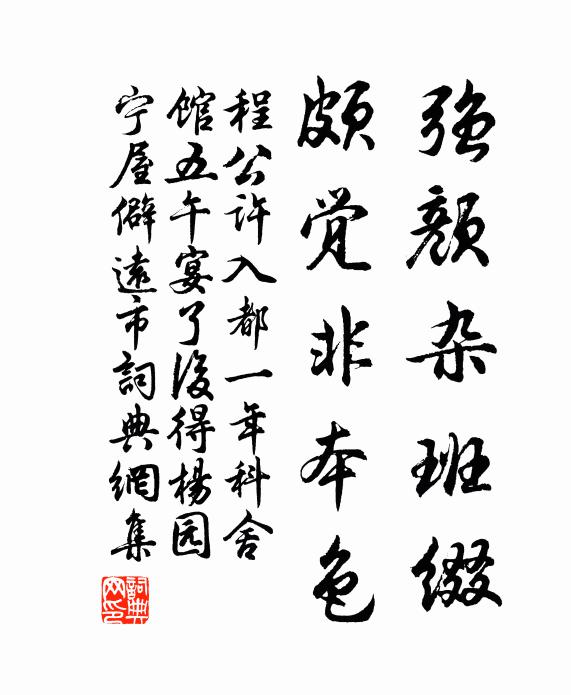 强颜杂班缀
颇觉非本色
程公许入都一年科舍
馆五午宴了後得杨园
宁屋僻遠市詞典網集
詞典网印